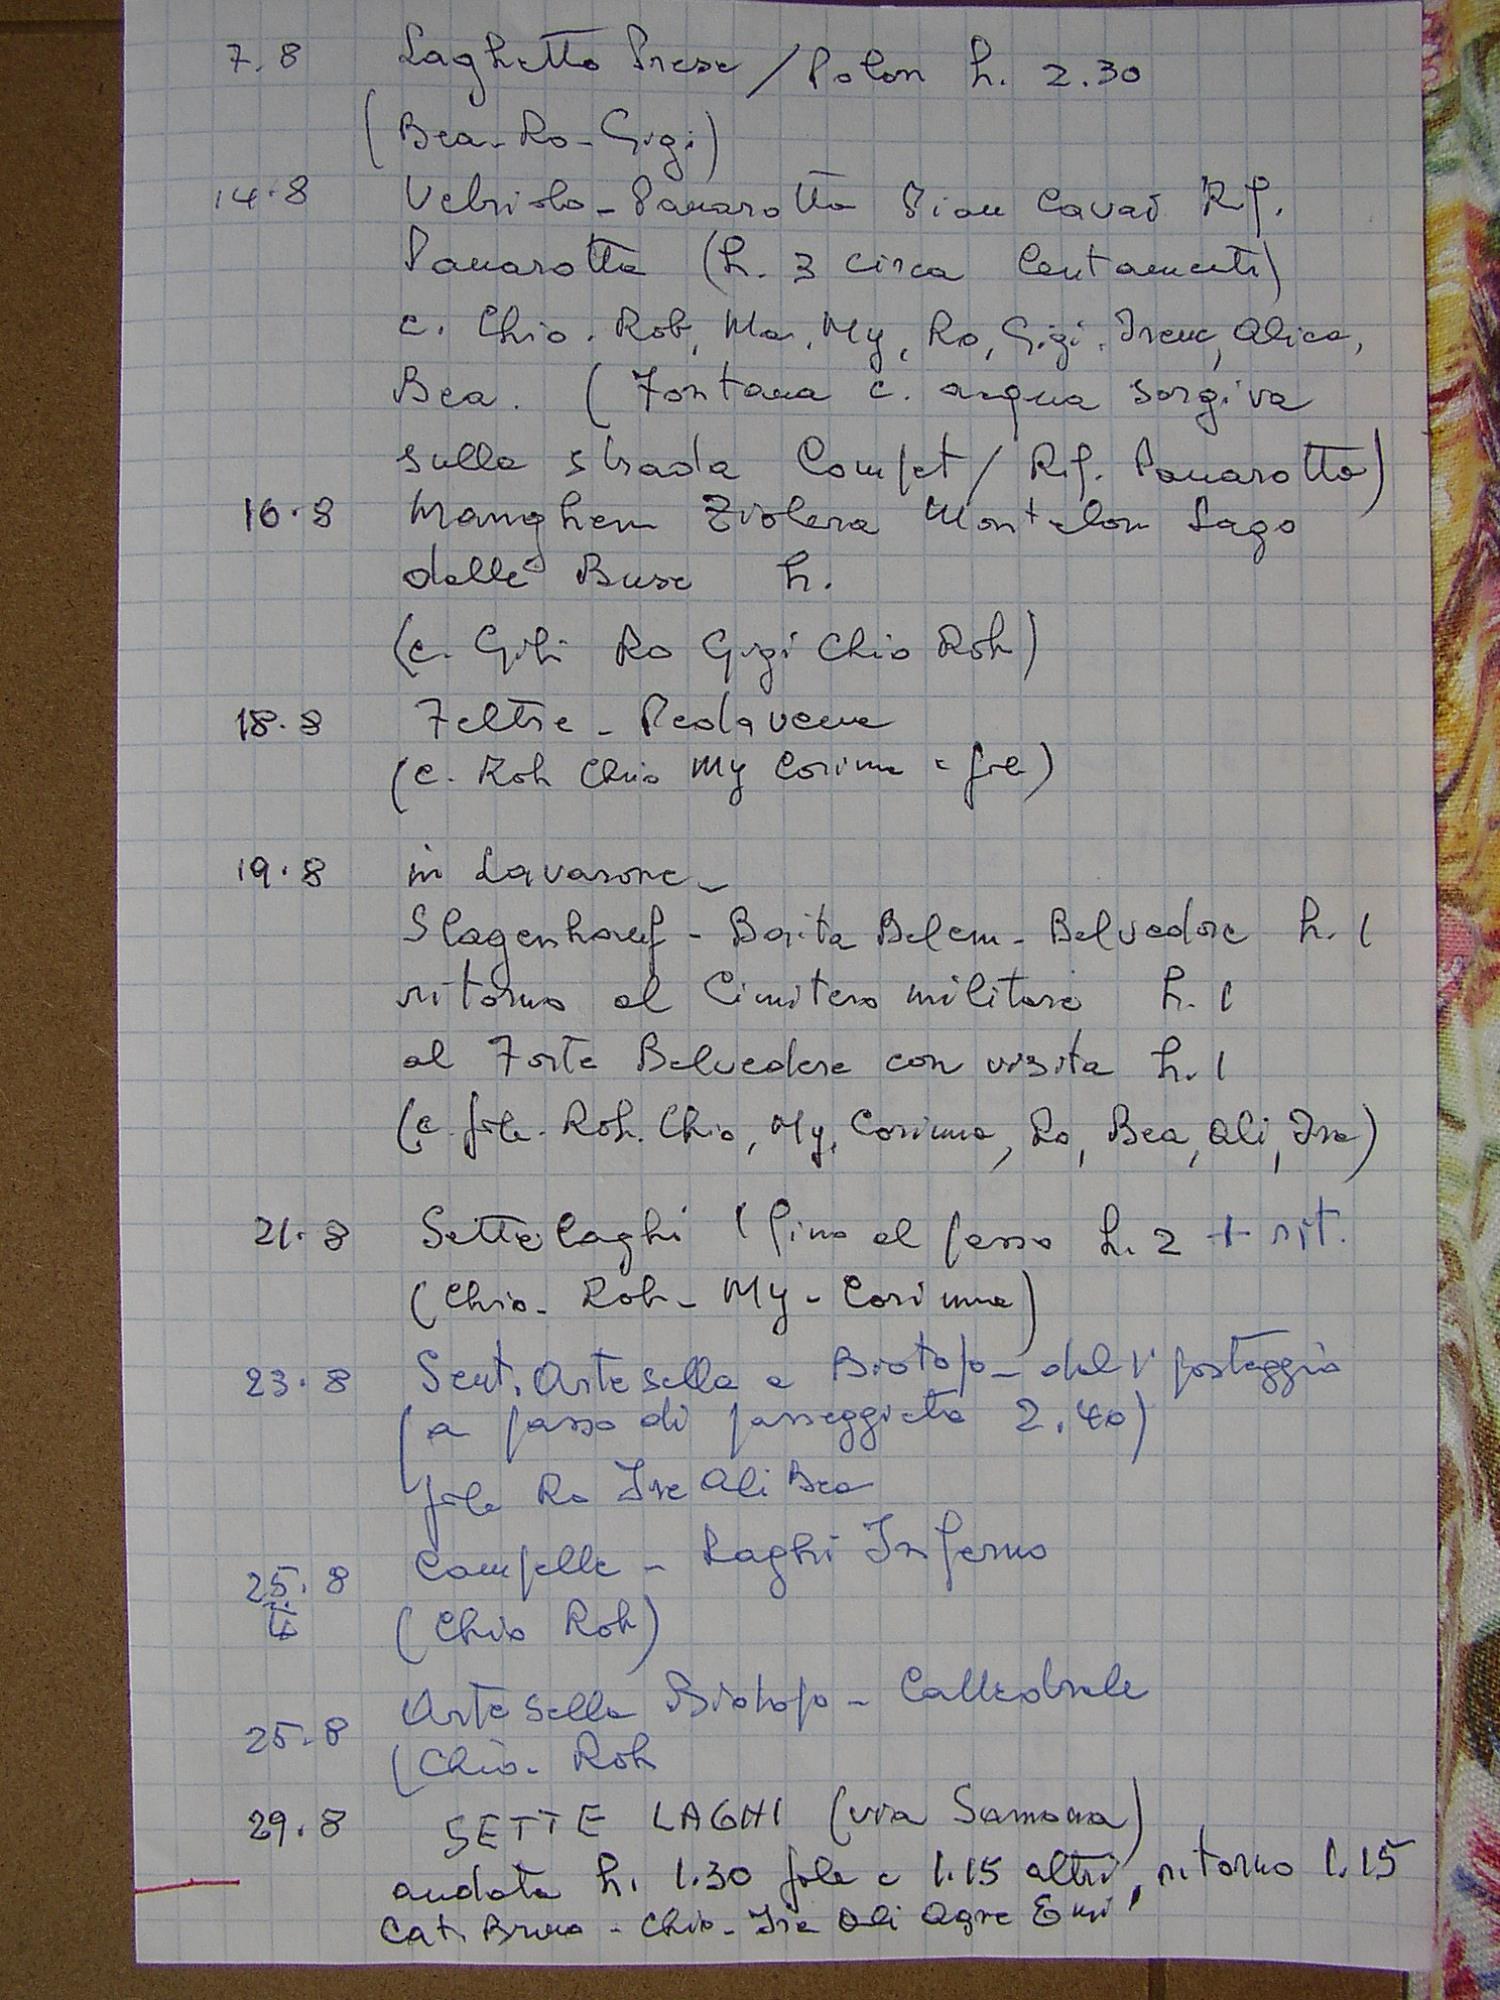 7.8 Laghetto Prese / Polon h. 2.30
(Bea - Ro - Gigi)
14.8 Vetriolo - Panarotta Pian Cavai Rif.
Panarotta (h. 3 circa lentamente)
c. Chio. Rob, Ma, My, Ro, Gigi, Irene, Alice,
Bea. (Fontana c. acqua sorgiva
sulla strada Compet / Rif. Panarotta)
16.8 Manghen Ziolera Montalon Lago
delle Buse h.
(c. Ro Gigi Chio Rob)
18.8 Feltre - Pedavena
(c. Rob Chio My Corinna e)
19.8 in Lavarone -
Slagenhauf - Baita Belem - Belvedere h. 1
ritorno al Cimitero militare h. 1
al Forte Belvedere con visita h. 1
(c. Rob. Chio, My, Corinna, Ro, Bea, Ali, Ire)
21.8 Sette laghi (fino al passo h. 2 + rit.
(Chio - Rob - My - Corinna)
23.8 Sent. Arte sella e Biotopo - dal 1° posteggio
(a passo di passeggiata 2.40)
Ro Ire Ali Bea
25.8 Campelle - Laghi Inferno
(Chio Rob)
25.8 Arte Sella Biotopo - Cattedrale
(Chio - Rob
29.8 SETTE LAGHI (via Samona)
andata h. 1.30 e 1.15 altri, ritorno 1.15
Cat. Bruno - Chio - Ire Ali Agne Emi